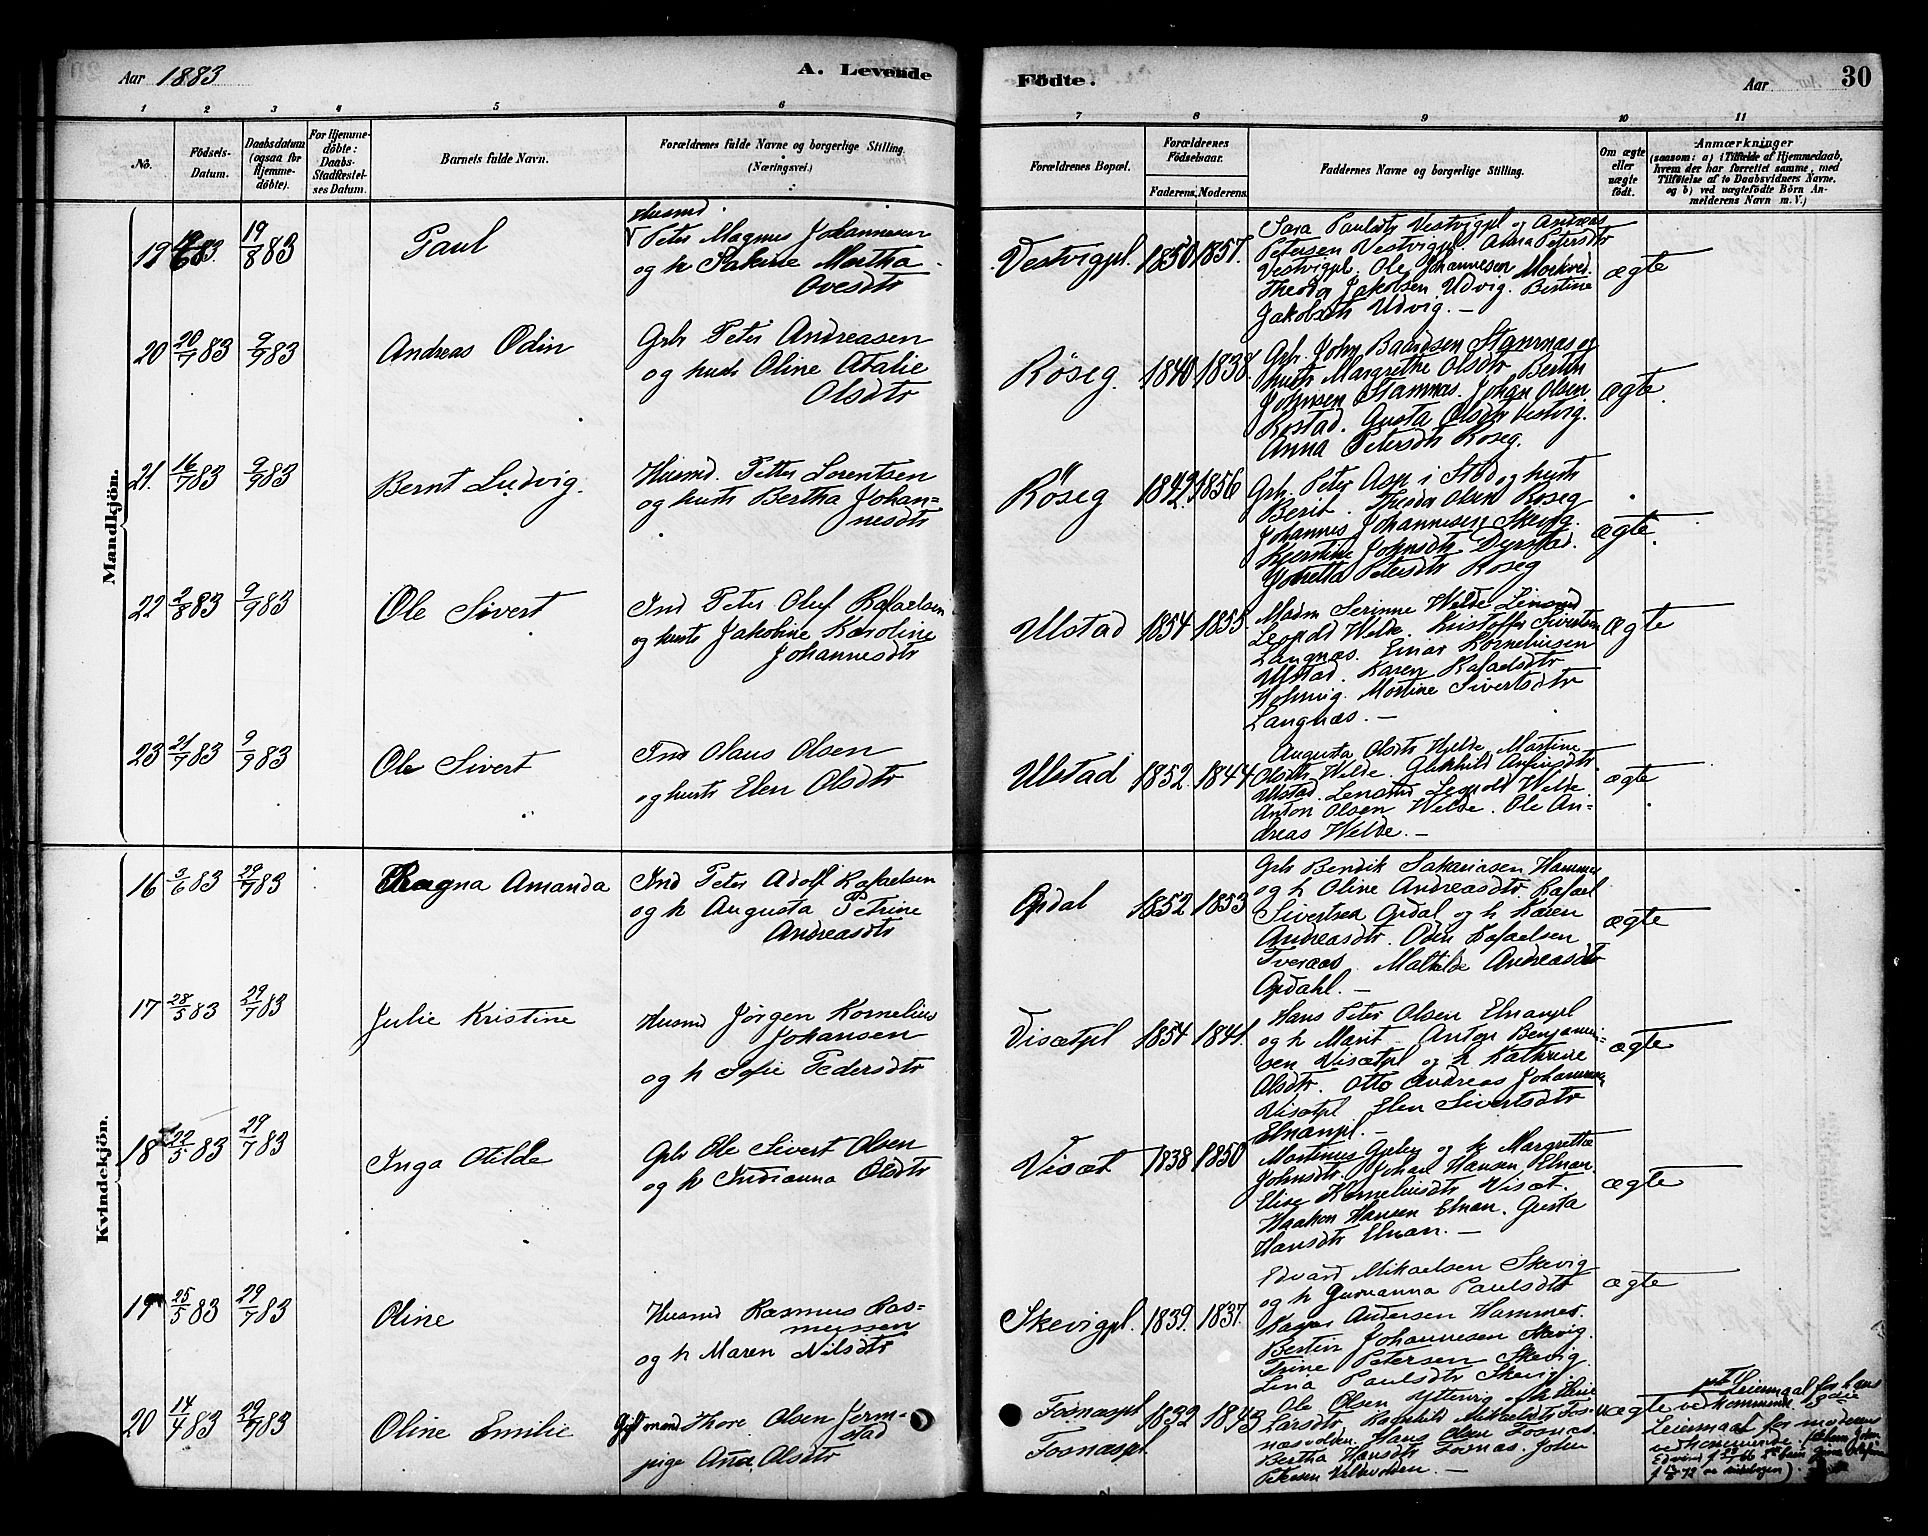 Aar 1883
A. Levende
Födte.
Aar
30
1 2 3 4 5 6
7 8 9 10 11
No.
Födsels-
Datum.
Daabsdatum
(ogsaa for
Hjemme-
døbte).
For Hjemme-
døbte:
Daabs-
Stadfæstel-
ses Datum.
Barnets fulde Navn.
Forældrenes fulde Navne og borgerlige Stilling.
(Næringsvei.)
Forældrenes Bopæl.
Forældrenes
Födselsaar.
Faderens. Moderens.
Faddernes Navne og borgerlige Stilling.
Om ægte
eller
uægte
födt.
Anmærkninger
(saasom: a) i Tilfælde af Hjemmedaab,
hvem der har forrettet samme, med
Tilføielse af to Daabsvidners Navne,
og b) ved uægtefödte Börn An-
melderens Navn m. V.)
Mandkjön.
19 83 19/8 83
Paul
Husmd.
Peter Magnus Johannesen
og h Martha
Ovesdtr
Vestvigpl. 1850 1857.
Sara Paulsdtr Vestvigpl og Andreas
Petersen Vestvigpl. Anna Petersdtr
Vestvigpl. Ole Johannesen Morkved.
Theodor Jakobsen Udvig. Bestine
Jakobsdtr Udvig. —
ægte
20 20/7 83 9/9 83
Andreas Odin
Grbr Peter Andreasen
og hustr Oline Atalie
Olsdtr
Röseg. 1840 1838.
Grbr. John Baardsen Stamnes og
hustr Margrethe Olsdtr. Bestin
Johnsen Stamnæs. Johan Olsen
Rostad. Gusta Olsdtr Vestvig.
Anna Petersdtr Roseg.
ægte.
21. 16/7 83 9/9 83
Bernt Ludvig.
Husmd. Petter Lorentsen
og hustr Bertha Johan-
nesdtr
Röseg 1842. 1856
Grbr. Peter Asp i Stod og hustr
Berit. Theodor Olsen Roseg
Johannes Johannesen Skevig.
Kjerstine Johnsdtr Dyrstad.
Johetta Petersdtr Roseg
ægte.
22 2/8 83 9/9 83
Ole Sivert
Ind Peter Oluf Rafaelsen
og hustr Jakobine Karoline
Johannesdtr
Ulstad 1854. 1855.
Madm Serinne Welde Lensmd
Leopold Welde. Kristoffer Sivertsen
Langnæs. Einar Korneliussen
Ulstad. Karen Rafaelsdtr
Holmvig. Mortine Sivertsdtr
Langnæs. —
Ægte
23 21/7 83 9/9 83
Ole Sivert
Ind Olaus Olsen
og hustr Elen Olsdtr
Ulstad 1852. 1844
Augusta Olsdtr Welde Martine
Olsdtr Welde. Arfinsdtr
Ulstad. Lensmd Leopold Welde
Anton Olsen Welde. Ole An-
dreas Welde. —
ægte
Kvindekjön.
16 3/6 83 29/7 83
Ragna Amanda
Ind Peter Adolf Rafaelsen
og h Augusta Petrine
Andreasdtr
Opdal 1852 1853
Grbr Bendik Sakariasen Hammer
og h Oline Andreasdtr. Rafael
Sivertsen Opdal og h Karen
Andreasdtr. Odin Rafaelsen
Tveraas. Mathilde Andreasdtr
Opdahl. —
ægte
17 28/5 83 29/7 83
Julie Kristine
Husmd Jørgen Kornelius
Johansen
og h Sofie Pedersdtr
Visætpl 1854 1841.
Hans Peter Olsen Elnanpl
og h Marit. Anton Benjamin-
sen Visætpl og h Kathrine
Olsdtr. Otto Andreas Johannesen
Visætpl Elen Sivertsdtr
Elnanpl. —
ægte
18 22/5 83 29/7 83
Inga Otilde
Grbr Ole Sivert Olsen
og h Indianna Olsdtr
Visæt 1838 1850
Martinus og h Margretha
Johnsdtr. Johan Hansen Elnan
Elise Korneliusdtr Visæt.
Haakon Hansen Elnan. Gusta
Hansdtr Elnan. —
ægte
19 25/5 83 29/7 83
Oline
Husmd Rasmus Ras-
mussen
og h Maren Nilsdtr
Skevigpl. 1839. 1837.
Edvard Mikaelsen Skevig
og h Gurianna Paulsdtr
Andersen Hammer.
Bestin Johannesen Skevig.
Trine Petersen Skevig
Lina Paulsdtr Skevig
ægte
20 14/4 83 29/7 83
Oline Emilie
Gift mand Thore Olsen Jerm-
stad
pige Ane Olsdtr
Fosnæspl
Fosnæspl. 1832 1843
Ole Olsen Yttervig og h Lene
Larsdtr. Ragnhild Mikaelsdtr Fos-
næsvolden. Hans Olsen Fosnæs.
Bertha Hansdtr Fosnæs. John
Petersen
uægte
Leiermaal for hans
vedkommende 3die
Leiermaal for moderens
vedkommende.